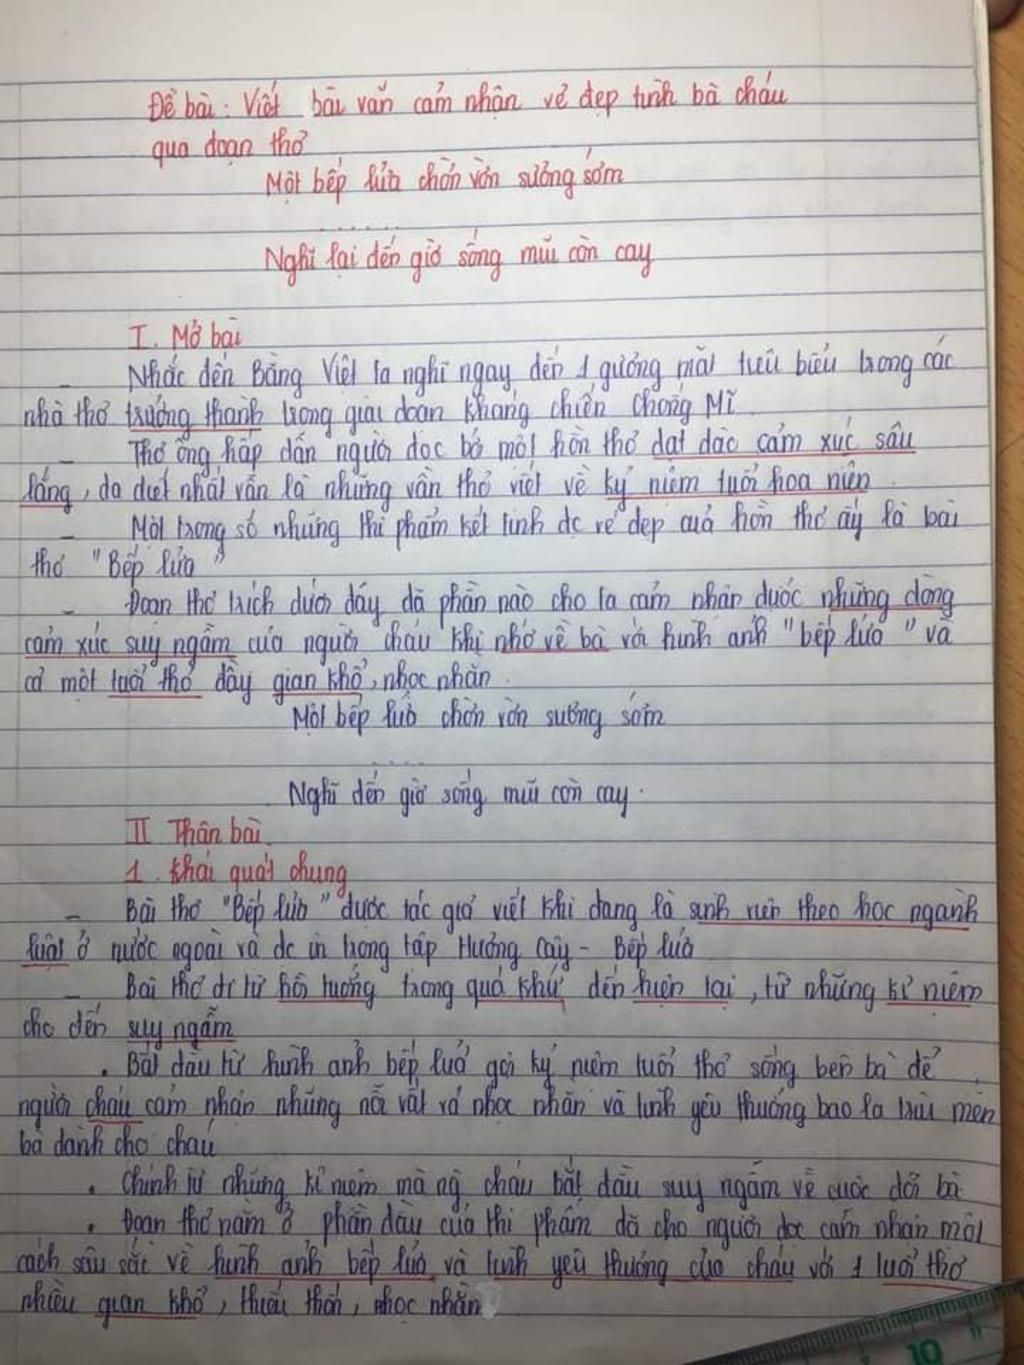 Đề bài: Viết bài văn cảm nhận vẻ đẹp tình bà cháu
qua đoạn thơ
Một bếp lửa chờn vờn sương sớm
......
Nghĩ lại đến giờ sống mũi còn cay
I. Mở bài
- Nhắc đến Bằng Việt ta nghĩ ngay đến 1 gương mặt tiêu biểu trong các
nhà thơ trưởng thành trong giai đoạn kháng chiến chống Mĩ
- Thơ ông hấp dẫn người đọc bởi một hồn thơ dạt dào cảm xúc sâu
lắng, da diết nhất vẫn là những vần thơ viết về ký niệm tuổi hoa niên.
- Một trong số những thi phẩm kết tinh đc vẻ đẹp của hồn thơ ấy là bài
thơ "Bếp lửa"
- Đoạn thơ trích dưới đây đã phần nào cho ta cảm nhận được những dòng
cảm xúc suy ngẫm của người cháu khi nhớ về bà và hình ảnh "bếp lửa" và
cả một tuổi thơ đầy gian khổ, nhọc nhằn.
Một bếp lửa chờn vờn sương sớm
....
Nghĩ đến giờ sống mũi còn cay.
II Thân bài.
1. Khái quát chung
- Bài thơ "Bếp lửa" được tác giả viết khi đang là sinh viên theo học ngành
luật ở nước ngoài và đc in trong tập Hương cây - Bếp lửa
- Bài thơ đi từ hồi tưởng trong quá khứ đến hiện tại, từ những kỉ niệm
cho đến suy ngẫm
. Bắt đầu từ hình ảnh bếp lửa gợi ký niệm tuổi thơ sống bên bà để
người cháu cảm nhận những nỗi vất vả nhọc nhằn và tình yêu thương bao la trìu mến
bà dành cho cháu
. Chính từ những kỉ niệm mà ng cháu bắt đầu suy ngẫm về cuộc đời bà
. Đoạn thơ nằm ở phần đầu của thi phẩm đã cho người đọc cảm nhận một
cách sâu sắc về hình ảnh bếp lửa và tình yêu thương của cháu với 1 tuổi thơ
nhiều gian khổ, thiếu thốn, nhọc nhằn
10